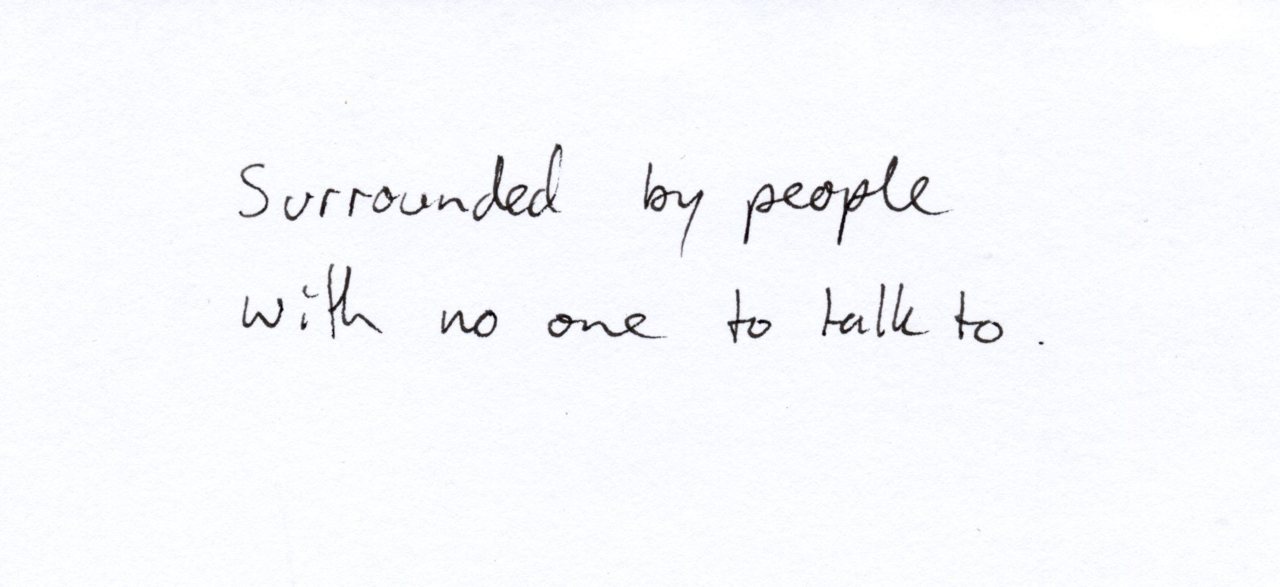 Surrounded by people
with no one to talk to.